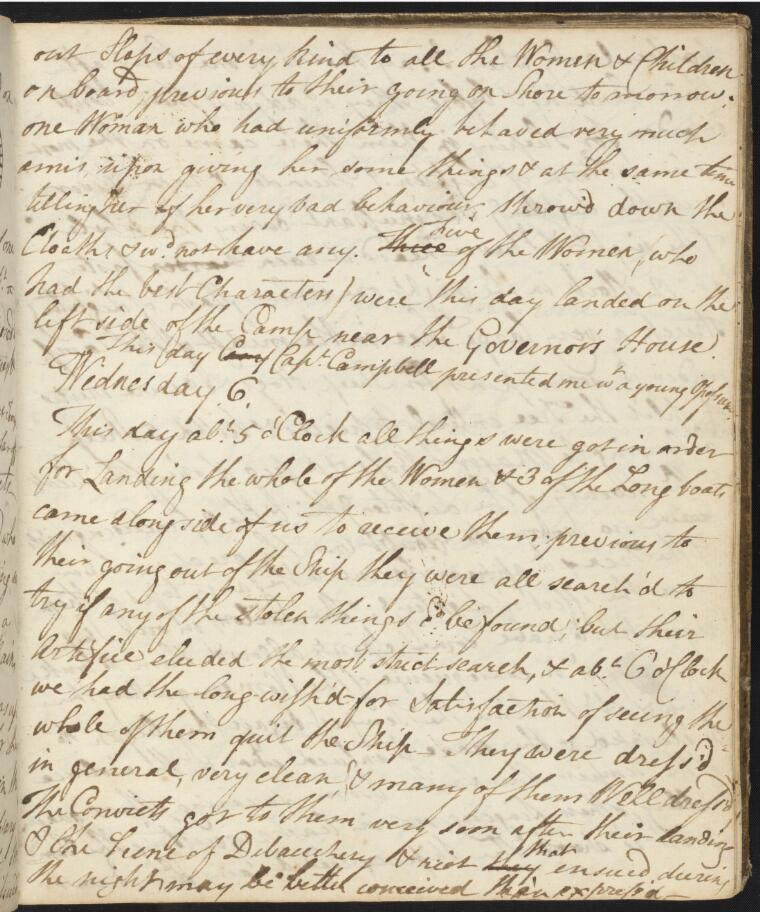 out Slops of every kind to all the Women & Children
on board, previous to their going on Shore tomorrow.
one Woman who had uniformly behaved very much
amis, upon giving her some things & at the same time
telling her of her very bad behaviour, throw'd down the
Cloaths & wd. not have any. Three Five of the Women, (who
had the best Characters) were this day landed on the
left side of the Camp near the Governor's House.
This day Capt. Campbell presented me wh. a young Opossum.
Wednesday 6.
This day abt. 5 o'Clock all things were got in order
for Landing the whole of the Women & 3 of the Long boats
came alongside of us to receive them: previous to
their going out of the Ship they were all search'd to
try if any of the stolen things cd. be found, but their
Artifice eluded the most strict search, & abt. 6 o'Clock
we had the long-wish'd-for Satisfaction of seeing the
whole of them quit the Ship – They were dress'd
in general, very clean, & many of them Well dress'd.
The Convicts got to them very soon after their landing,
& the Scene of Debauchery & riot that ensued during
the night may be better conceived than express'd –